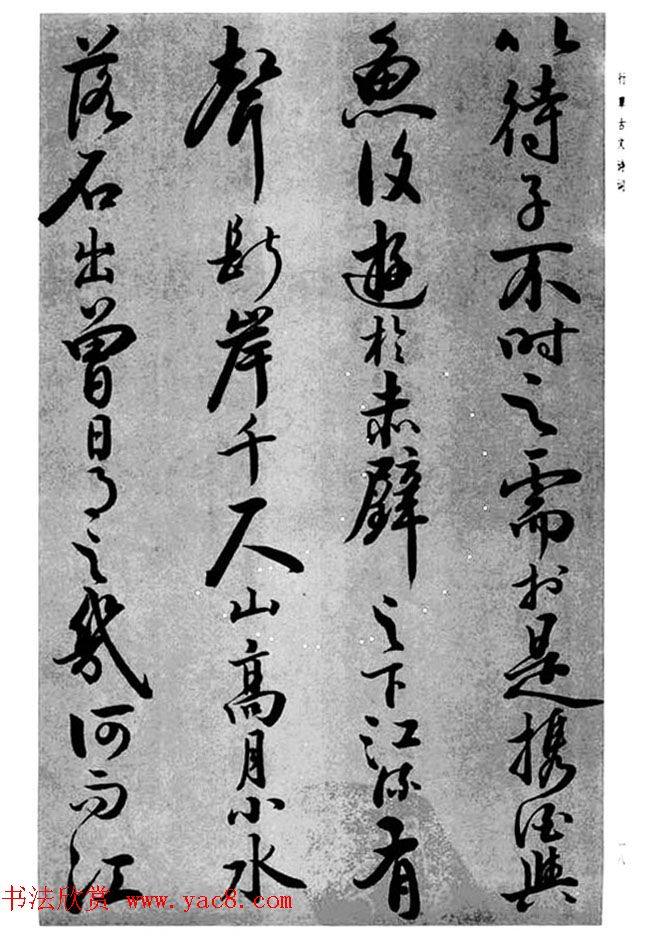 以待子不时之需於是携酒與
魚復遊於赤壁之下江流有
聲斷岸千尺山高月小水
落石出曾日月之幾何而江
行草古文诗词
一八
书法欣赏 www.yac8.com